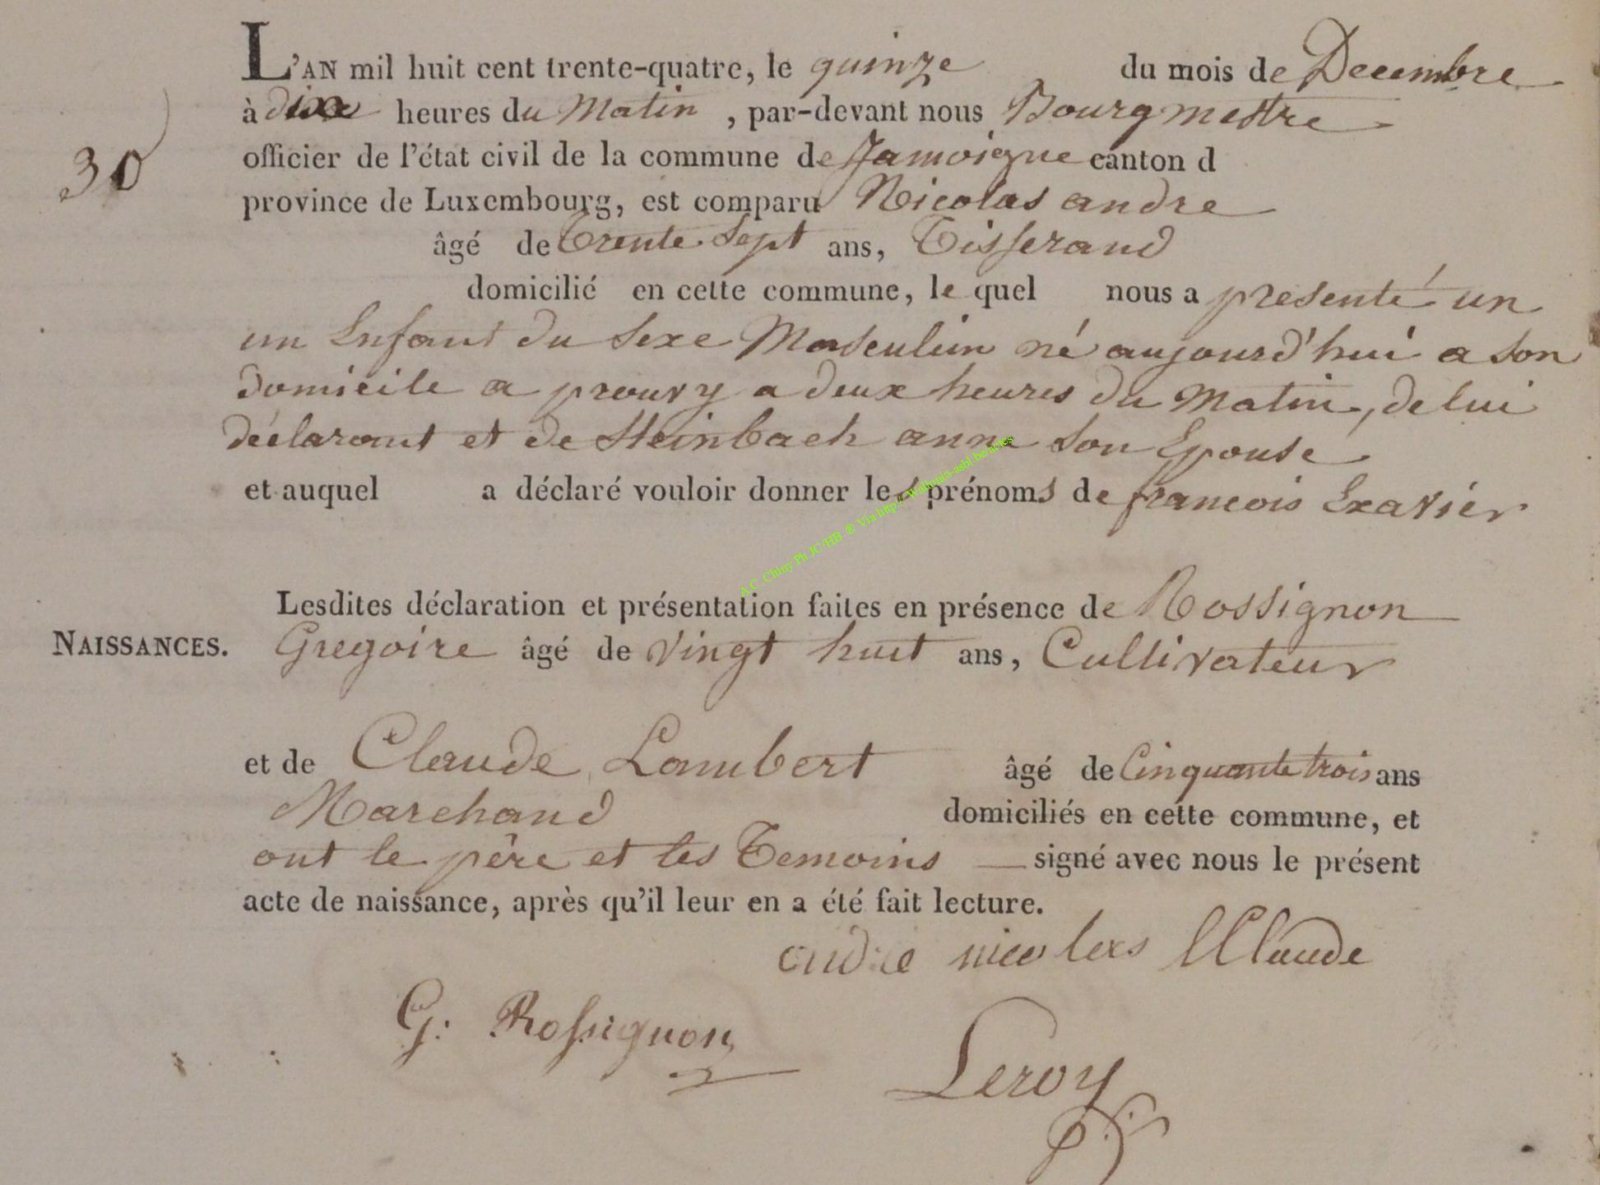 L'AN mil huit cent trente-quatre, le quinze du mois de Decembre
à dix heures du Matin, par-devant nous Bourgmestre
30
officier de l'état civil de la commune de Jamoigne canton d
province de Luxembourg, est comparu Nicolas andre
âgé de Trente Sept ans, Tisserand
domicilié en cette commune, le quel nous a presenté un
un Enfant du Sexe Masculin né aujourd'hui a son
domicile a prouvy a deux heures du Matin, de lui
déclarant et de Steinbach anne son Epouse
et auquel a déclaré vouloir donner les prénoms de francois Exavier
Lesdites déclaration et présentation faites en présence de Rossignon
NAISSANCES. Gregoire âgé de vingt huit ans, Cultivateur
et de Claude Lambert âgé de Cinquante trois ans
Marchand domiciliés en cette commune, et
ont le père et les Temoins signé avec nous le présent
acte de naissance, après qu'il leur en a été fait lecture.
andre nicolas Claude
G: Rossignon
Leroy